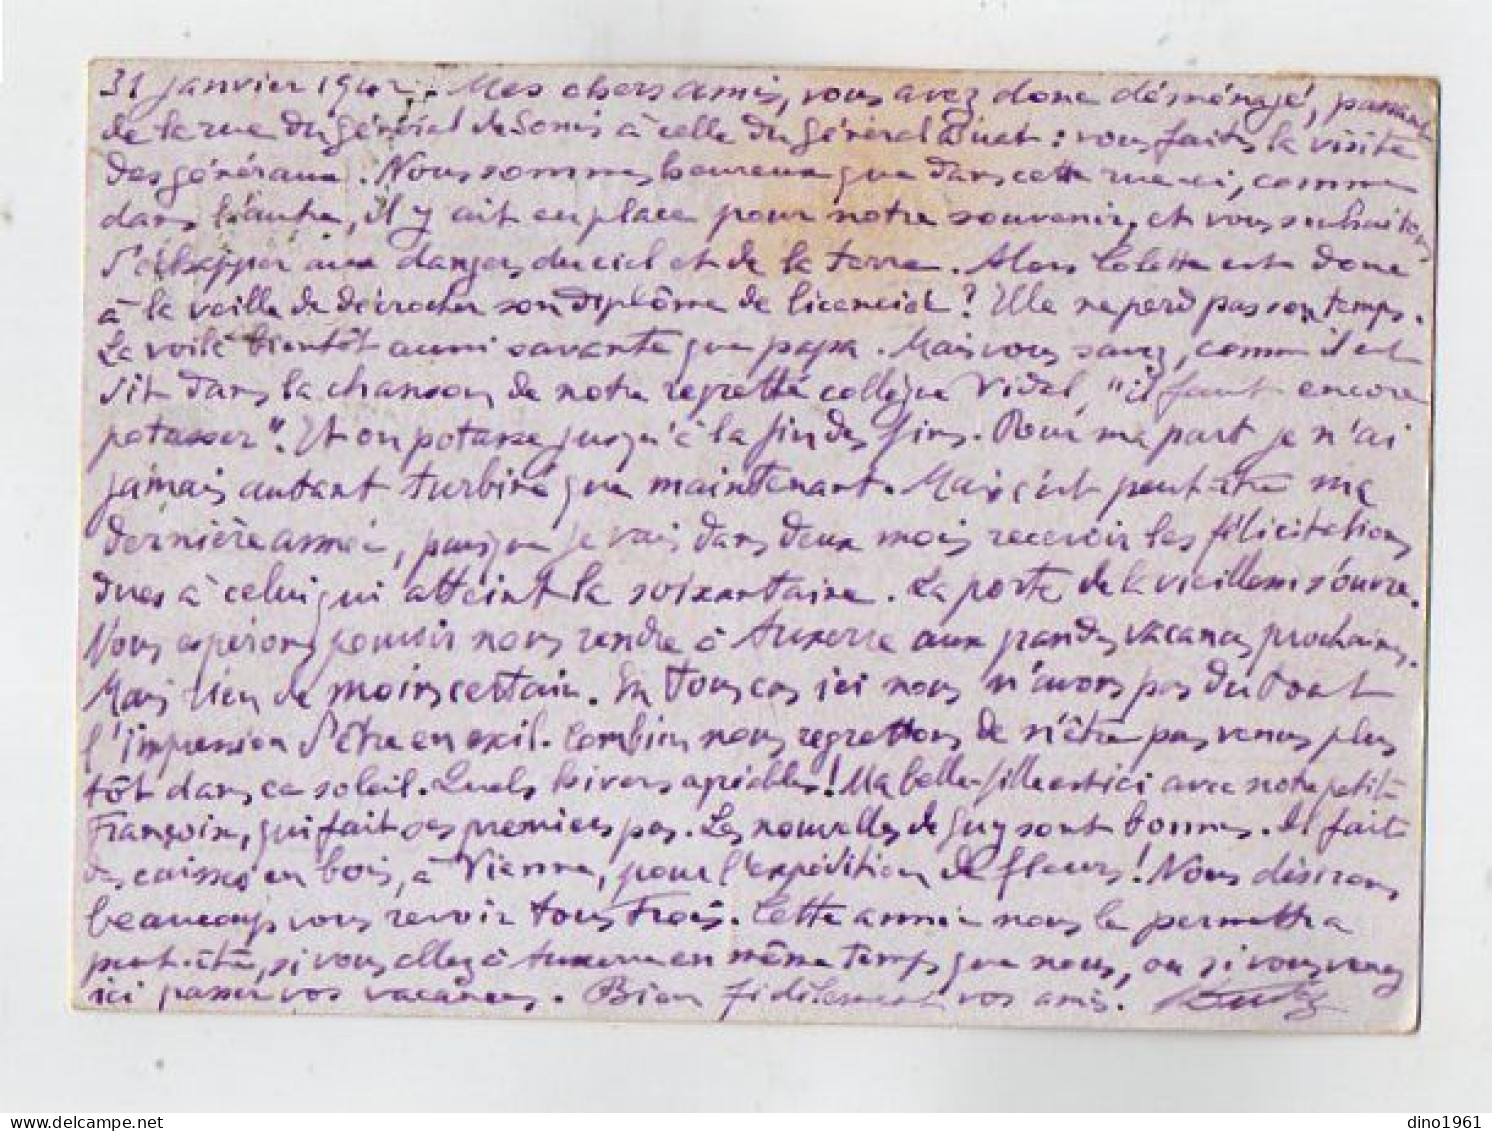 31 janvier 1942. Mes chers amis, vous avez donc déménagé, passant
de la rue du général de Sonis à celle du général Buat : vous faites la visite
des généraux. Nous sommes heureux que dans cette rue-ci, comme
dans l'autre, il y ait eu place pour notre souvenir, et vous souhaitons
d'échapper aux dangers du ciel et de la terre. Alors Colette est donc
à la veille de décrocher son diplôme de licenciée ? Elle ne perd pas son temps.
La voilà bientôt aussi savante que papa. Mais vous savez, comme il est
dit dans la chanson de notre regretté collègue Vidal, "il faut encore
potasser". Et on potasse jusqu'à la fin des fins. Pour ma part je n'ai
jamais autant turbiné que maintenant. Mais c'est peut-être ma
dernière année, puisque je vais dans deux mois recevoir les félicitations
dues à celui qui atteint la soixantaine. La porte de la vieillesse s'ouvre.
Nous espérons pouvoir nous rendre à Auxerre aux grandes vacances prochaines.
Mais rien de moins certain. En tous cas ici nous n'avons pas du tout
l'impression d'être en exil. Combien nous regrettons de n'être pas venus plus
tôt dans ce soleil. Quels hivers agréables ! Ma belle-fille est ici avec notre petite
Françoise, qui fait ses premiers pas. Les nouvelles de Guy sont bonnes. Il fait
des caisses en bois, à Vienne, pour l'expédition de fleurs ! Nous désirons
beaucoup vous revoir tous trois. Cette année nous le permettra
peut-être, si vous allez à Auxerre en même temps que nous, ou si vous venez
ici passer vos vacances. Bien fidèlement vos amis.
dino1961